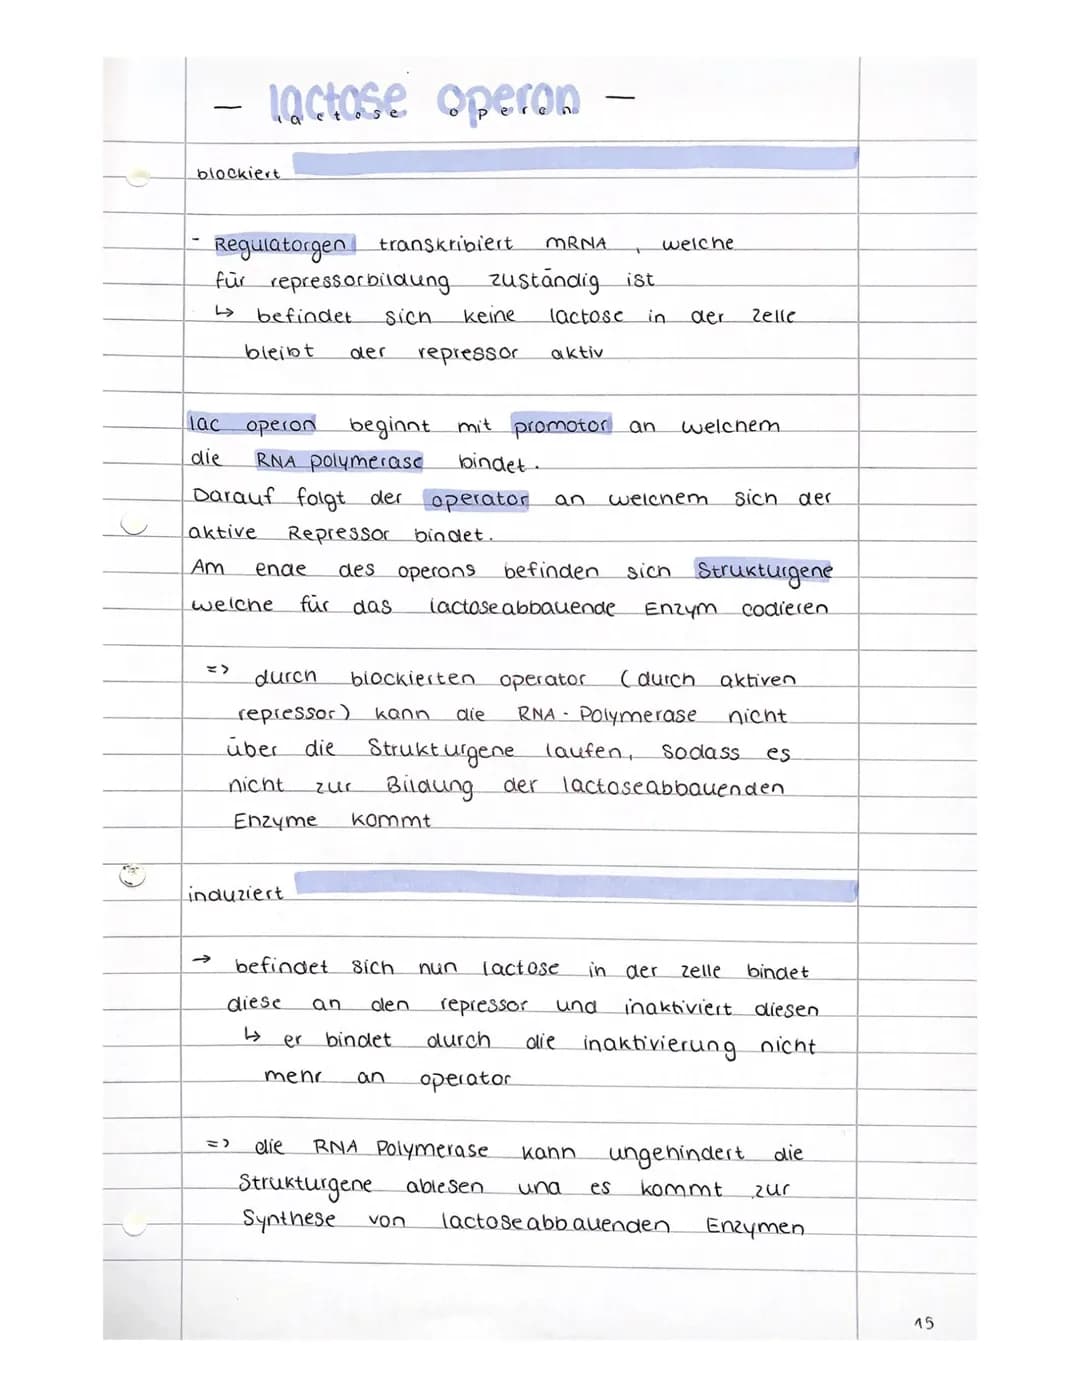 – lactose operon –
lactose operon
blockiert
- Regulatorgen transkribiert mRNA, welche
für repressorbildung zuständig ist
↳ befindet sich keine lactose in der zelle
bleibt der repressor aktiv
lac operon beginnt mit promotor an welchem
die RNA polymerase bindet.
Darauf folgt der operator an welchem sich der
aktive Repressor bindet.
Am ende des operons befinden sich Strukturgene
welche für das lactoseabbauende Enzym codieren
=> durch blockierten operator (durch aktiven
repressor) kann die RNA-Polymerase nicht
über die Strukturgene laufen, sodass es
nicht zur Bildung der lactoseabbauenden
Enzyme kommt
induziert
→ befindet sich nun lactose in der zelle bindet
diese an den repressor und inaktiviert diesen
↳ er bindet durch die inaktivierung nicht
mehr an operator
=> die RNA Polymerase kann ungehindert die
Strukturgene ablesen und es kommt zur
Synthese von lactoseabbauenden Enzymen
15